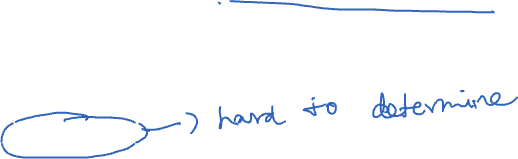 hard to determine